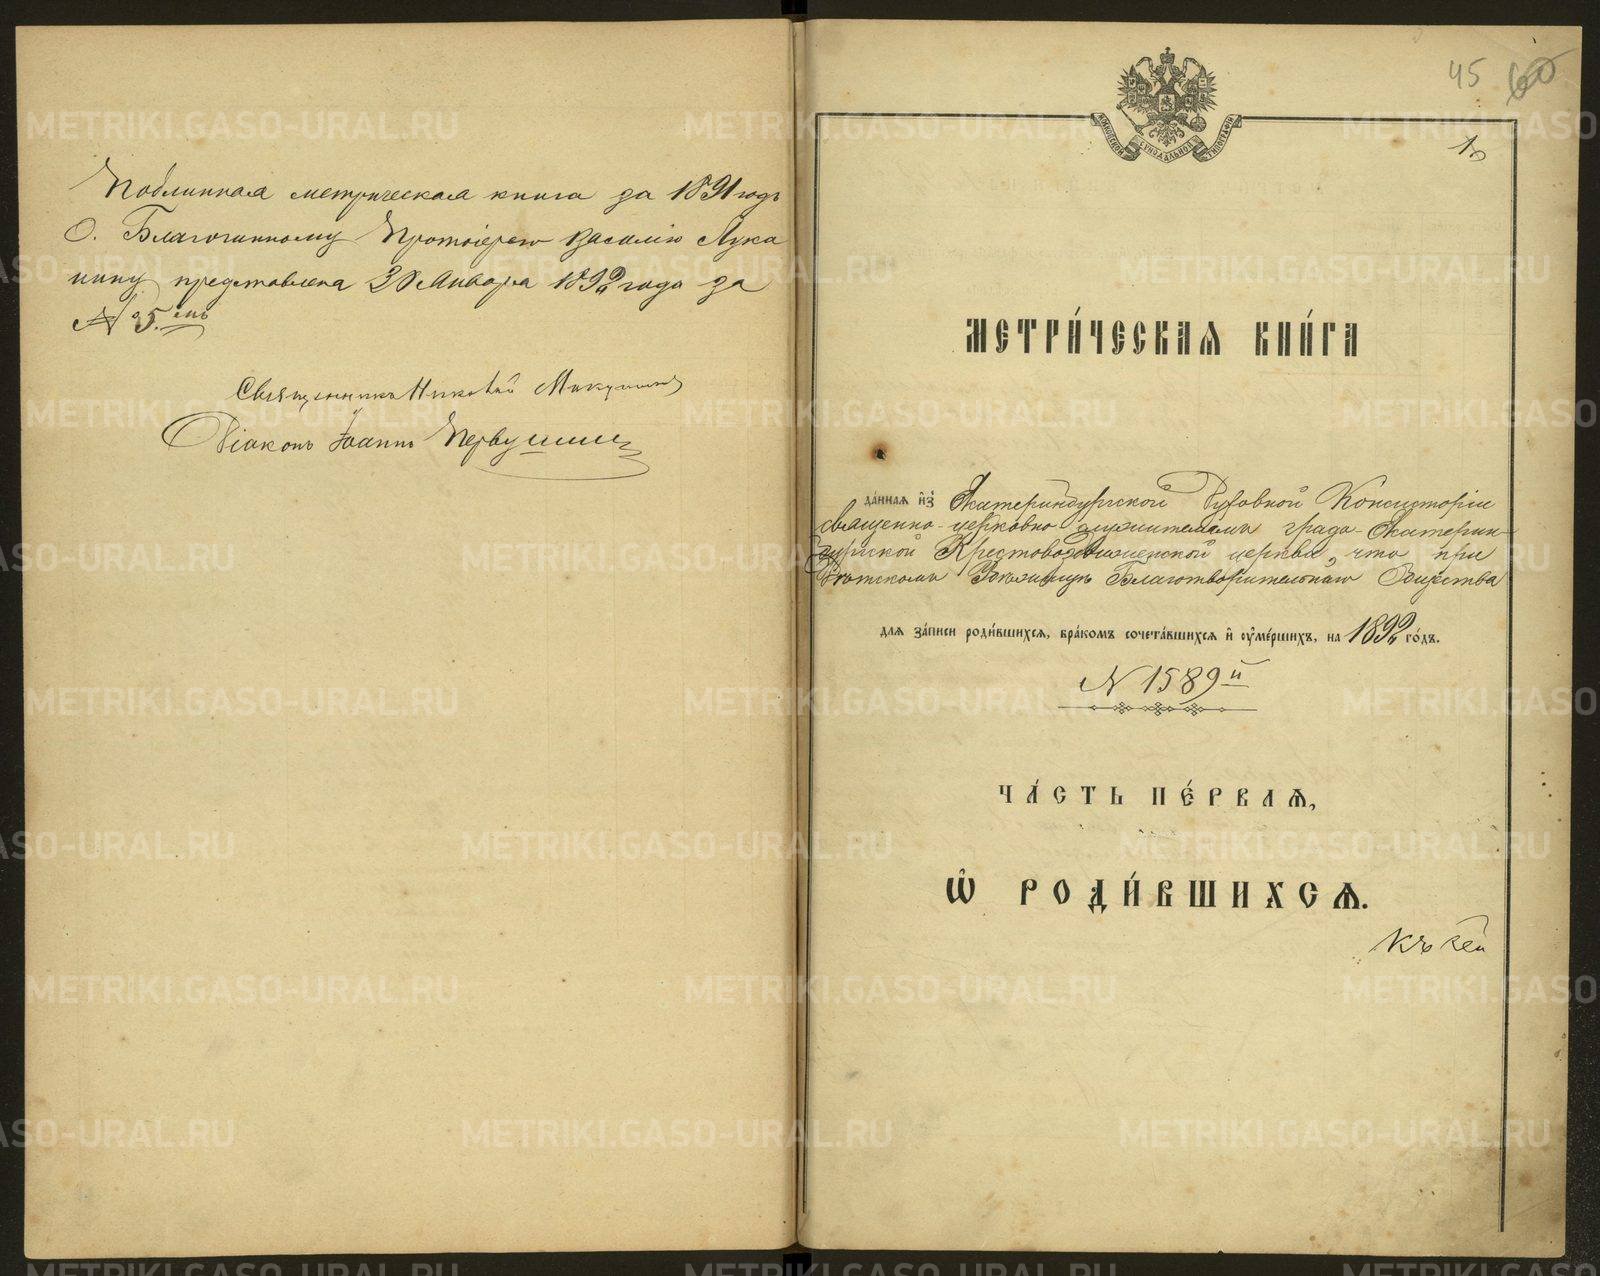 Подлинная метрическая книга за 1891 годъ
О. Благочинному Протоіерею Василію Лука
нину представлена 30 Января 1892 года за
№ 5.мъ
Священникъ Николай
Діаконъ Іоаннъ Первушинъ
45 60
1
СѴНОДАЛЬНОЙ ТИПОГРАФІИ
МЕТРИ́ЧЕСКАѦ КНИ́ГА
да́ннаѧ и҆з̾ Екатеринбургской Духовной Консисторіи
священно-церковно-служителямъ града Екатерин-
бургской Крестовоздвиженской церкви, что при
Дѣтскомъ Убѣжищѣ Благотворительнаго Общества
длѧ за́писи роди́вшихсѧ, бра́комъ сочета́вшихсѧ и҆ ᲂу҆ме́ршихъ, на 1892 го́дъ.
№ 1589й
ЧА́СТЬ ПЕ́РВАѦ,
Ѽ РОДИ́ВШИХСѦ.
METRIKI.GASO-URAL.RU